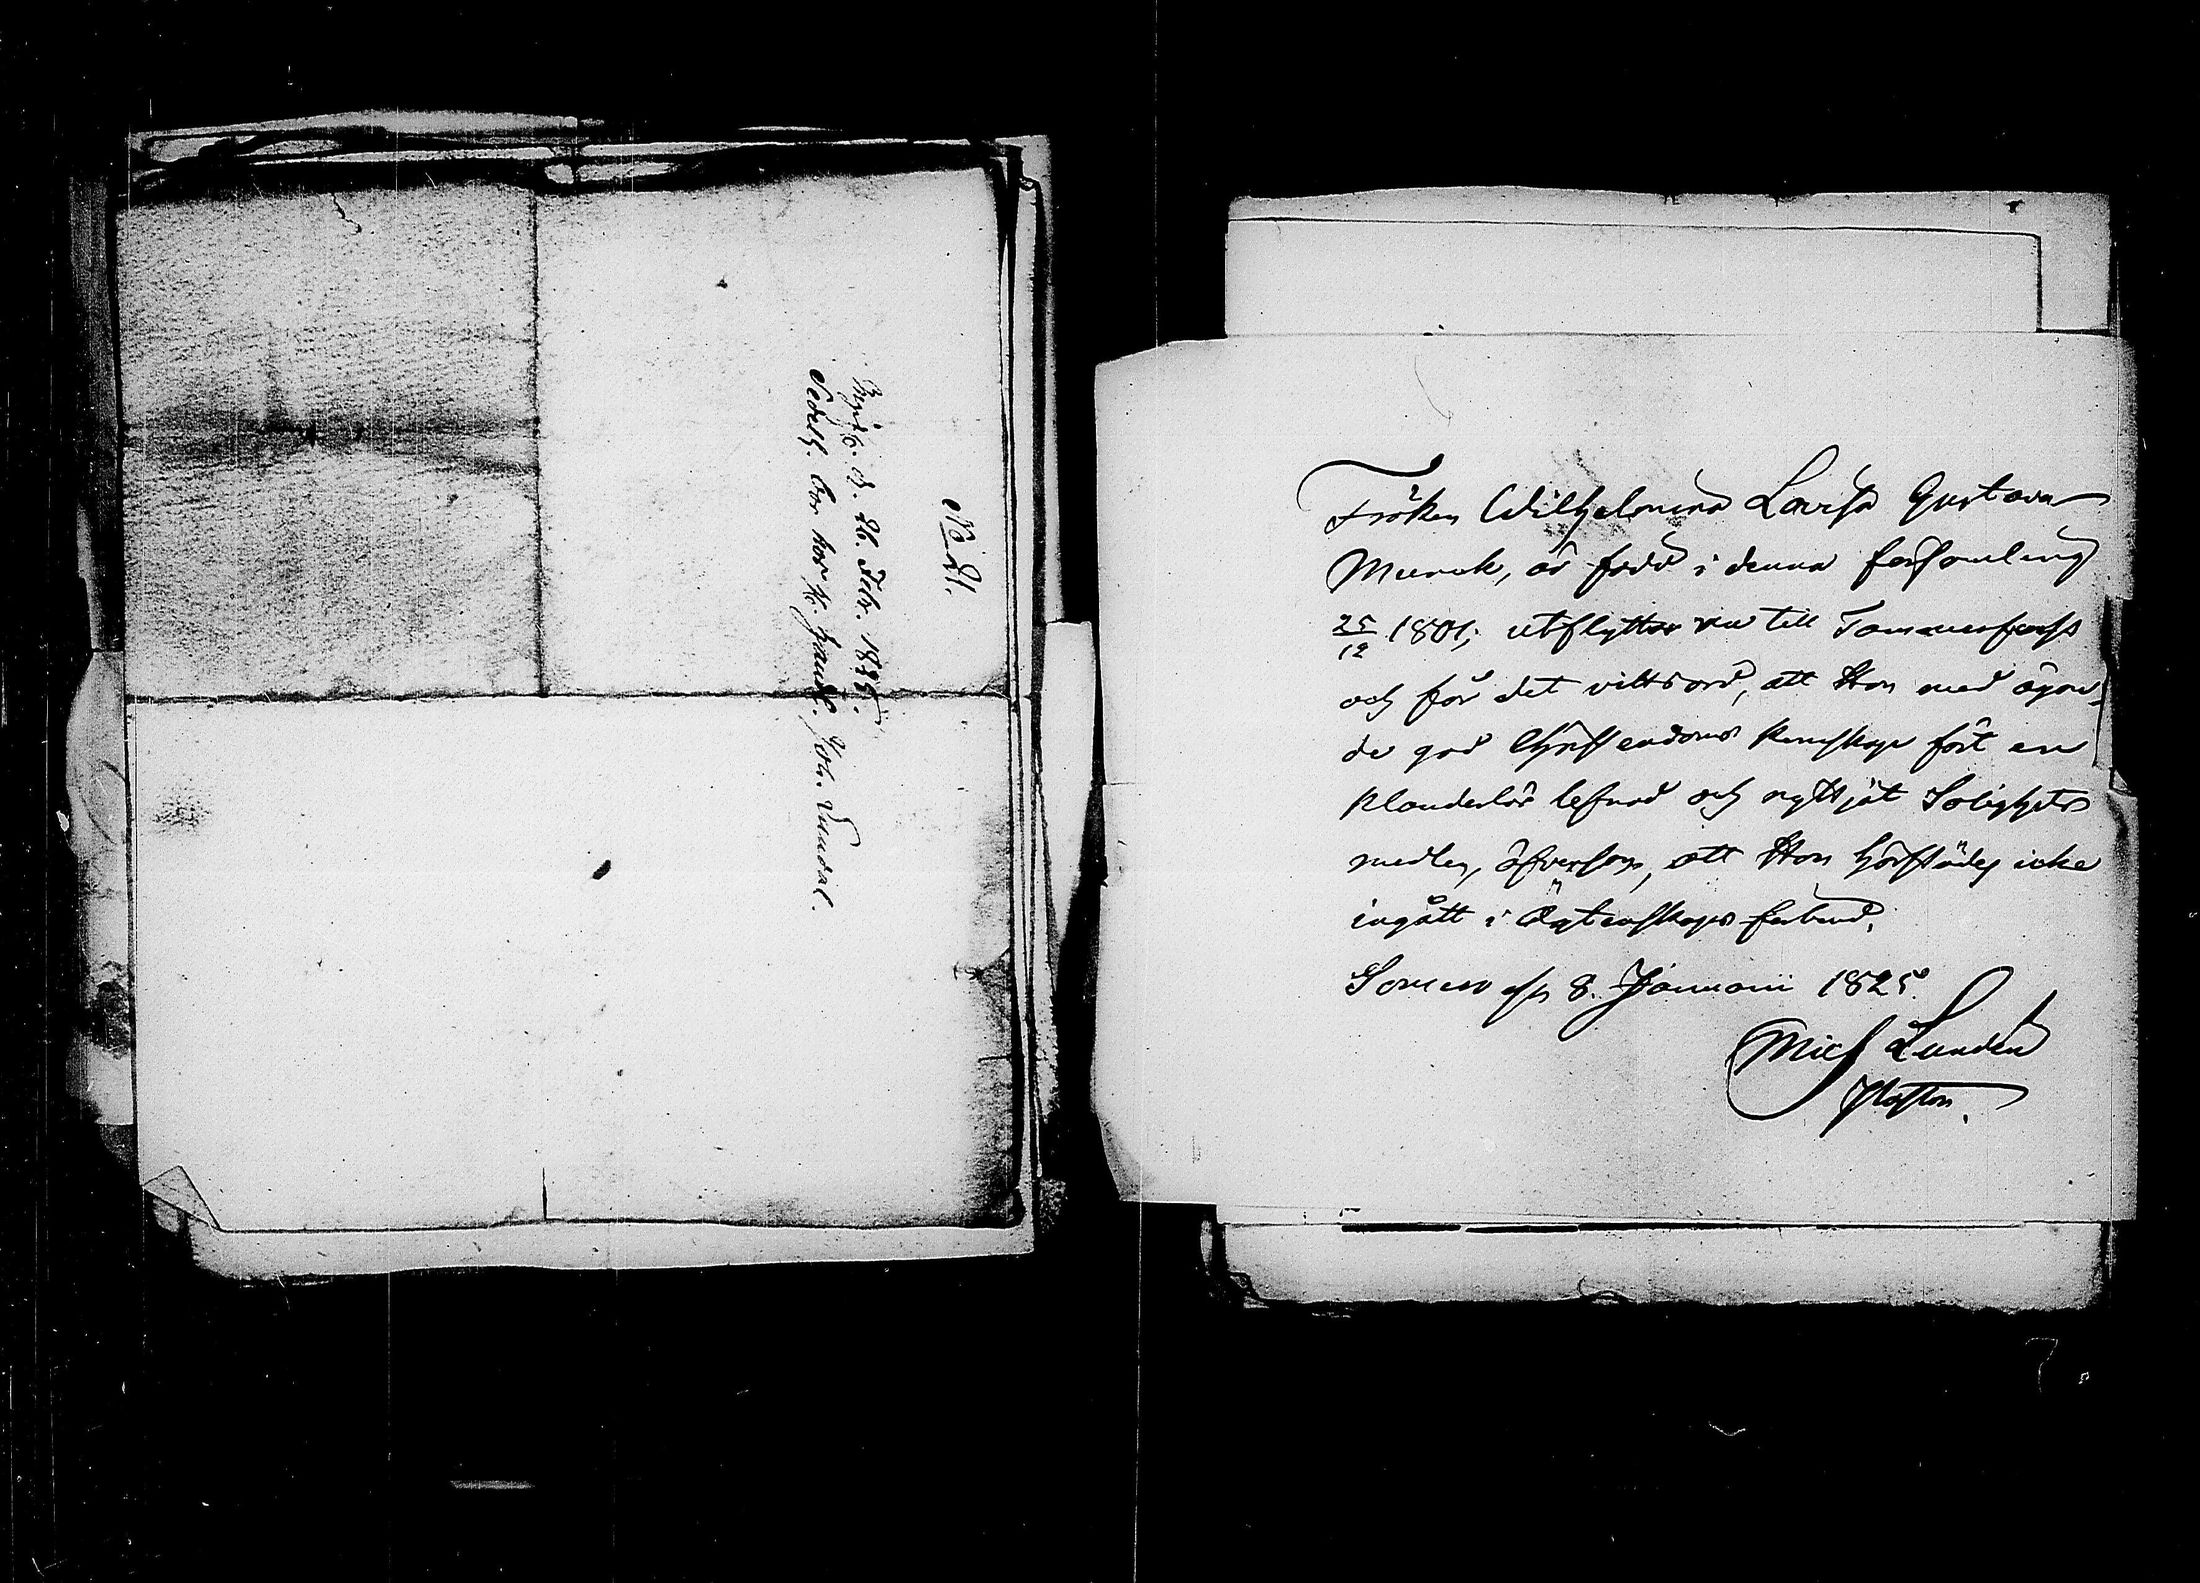 No 21.
d. 26. Febr. 1825.
Sedelh. Joh. Sundal.
Fröken Wilhelmina Lovisa Gustava
Munck, är född i denna församling
25/12 1801; utflyttar nu till Tammerfors
och får det vittsord, att Hon med ägan-
de god Christendoms kunskap fört en
klanderlös lefnad och nyttjat Salighets
medlen, äfvensom, att Hon härstädes icke
ingått i Ägtenskaps förbund.
8. Januarii 1825.
Mich Lunden
Pastor.